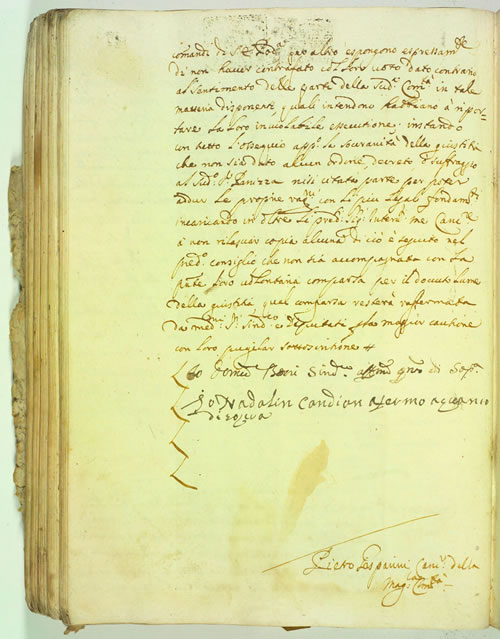 comandi di S. E. Pod.ª per altro espongono espressam.te
di non haver contrafato col loro voto dato contrario
al sentimento delle parte della Sud.ª Com.tà in tale
materia disponente, quali intendono habbiano à ripor-
tare la loro inviolabile essecutione; instando
con tutto l'ossequio app.º la souranità della giustitia
che non sii dato alcun ordine Decreto ò suffraggio
al Sud.º S.r Panizza nisi citata parte per poter
addur le proprie rag.ni con li piu legal fondam.ti
incaricando in oltre li pred.i Sig.i Interv.i me Canc.re
à non rilasciar copia alcuna di ciò è seguito nel
pred.º consiglio che non sia accompagnata con la
pnte loro volontaria comparsa per il dovuto lume
della giustitia qual comparsa resterà rafermata
da med.mi S.ri Sind.ci e deputati p. la maggior cautione
con loro pugilar sottoscrittione
Io Domeº Sind.º affermo qnto di Sop.ª
Io Nadalin Candian afermo a quanto
di sopra
Pietro Canc.r della
Mag.ca Com.tà